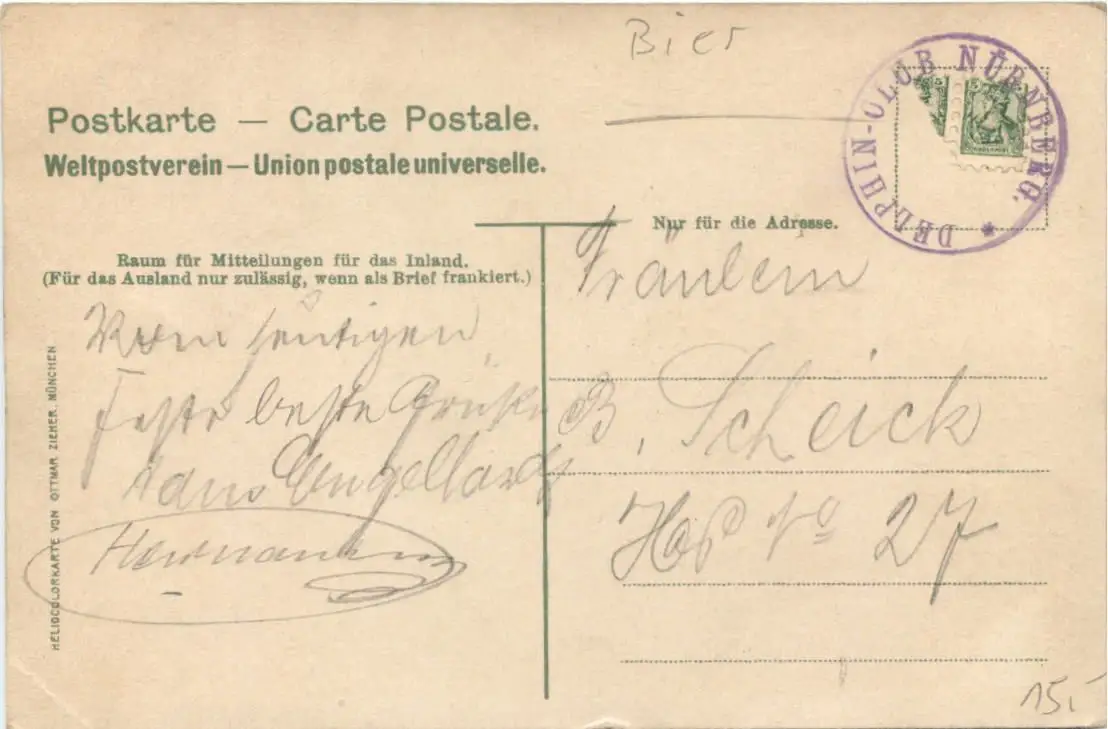 Bier
DELPHIN-CLUB NÜRNBERG. *
Postkarte — Carte Postale.
Weltpostverein — Union postale universelle.
Nur für die Adresse.
Raum für Mitteilungen für das Inland.
(Für das Ausland nur zulässig, wenn als Brief frankiert.)
Fräulein
B. Scheick
No 27
Vom heutigen
Feste beste Grüße
Hermann
HELIOCOLORKARTE VON OTTMAR ZIEHER, MÜNCHEN
15,-